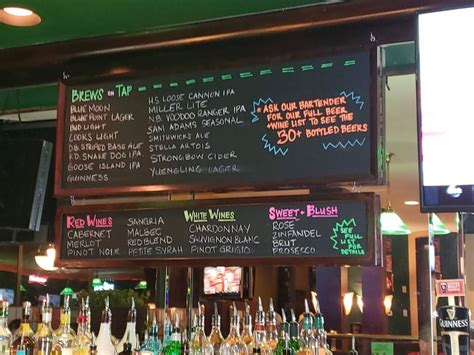 BREWS on TAP
BLUE MOON
BLUE POINT LAGER
BUD LIGHT
COORS LIGHT
D.B. STRIPED BASS ALE
F.D. SNAKE DOG IPA
GOOSE ISLAND IPA
GUINNESS
H.S. LOOSE CANNON IPA
MILLER LITE
N.B. VOODOO RANGER IPA
SAM ADAMS SEASONAL
SMITHWICK'S ALE
STELLA ARTOIS
STRONGBOW CIDER
YUENGLING LAGER
*ASK OUR BARTENDER
FOR OUR FULL BEER
+WINE LIST TO SEE THE
30+ BOTTLED BEERS
RED WINES
CABERNET
MERLOT
PINOT NOIR
SANGRIA
MALBEC
RED BLEND
PETITE SYRAH
WHITE WINES
CHARDONNAY
SAUVIGNON BLANC
PINOT GRIGIO
SWEET + BLUSH
ROSE
ZINFANDEL
BRUT
PROSECCO
SEE
FULL
LIST FOR
DETAILS
GUINNESS